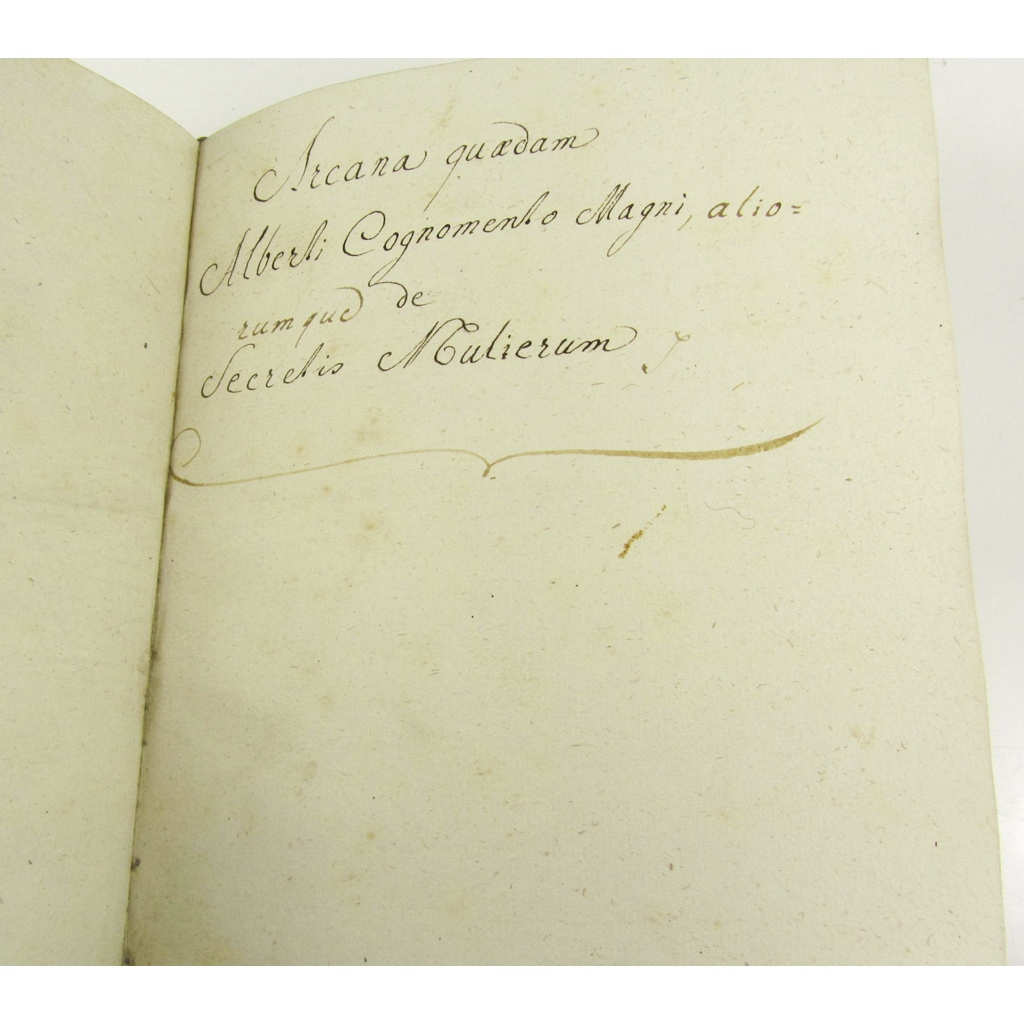 Arcana quædam
Alberti Cognomento Magni, alio=
rumque de
Secretis Mulierum